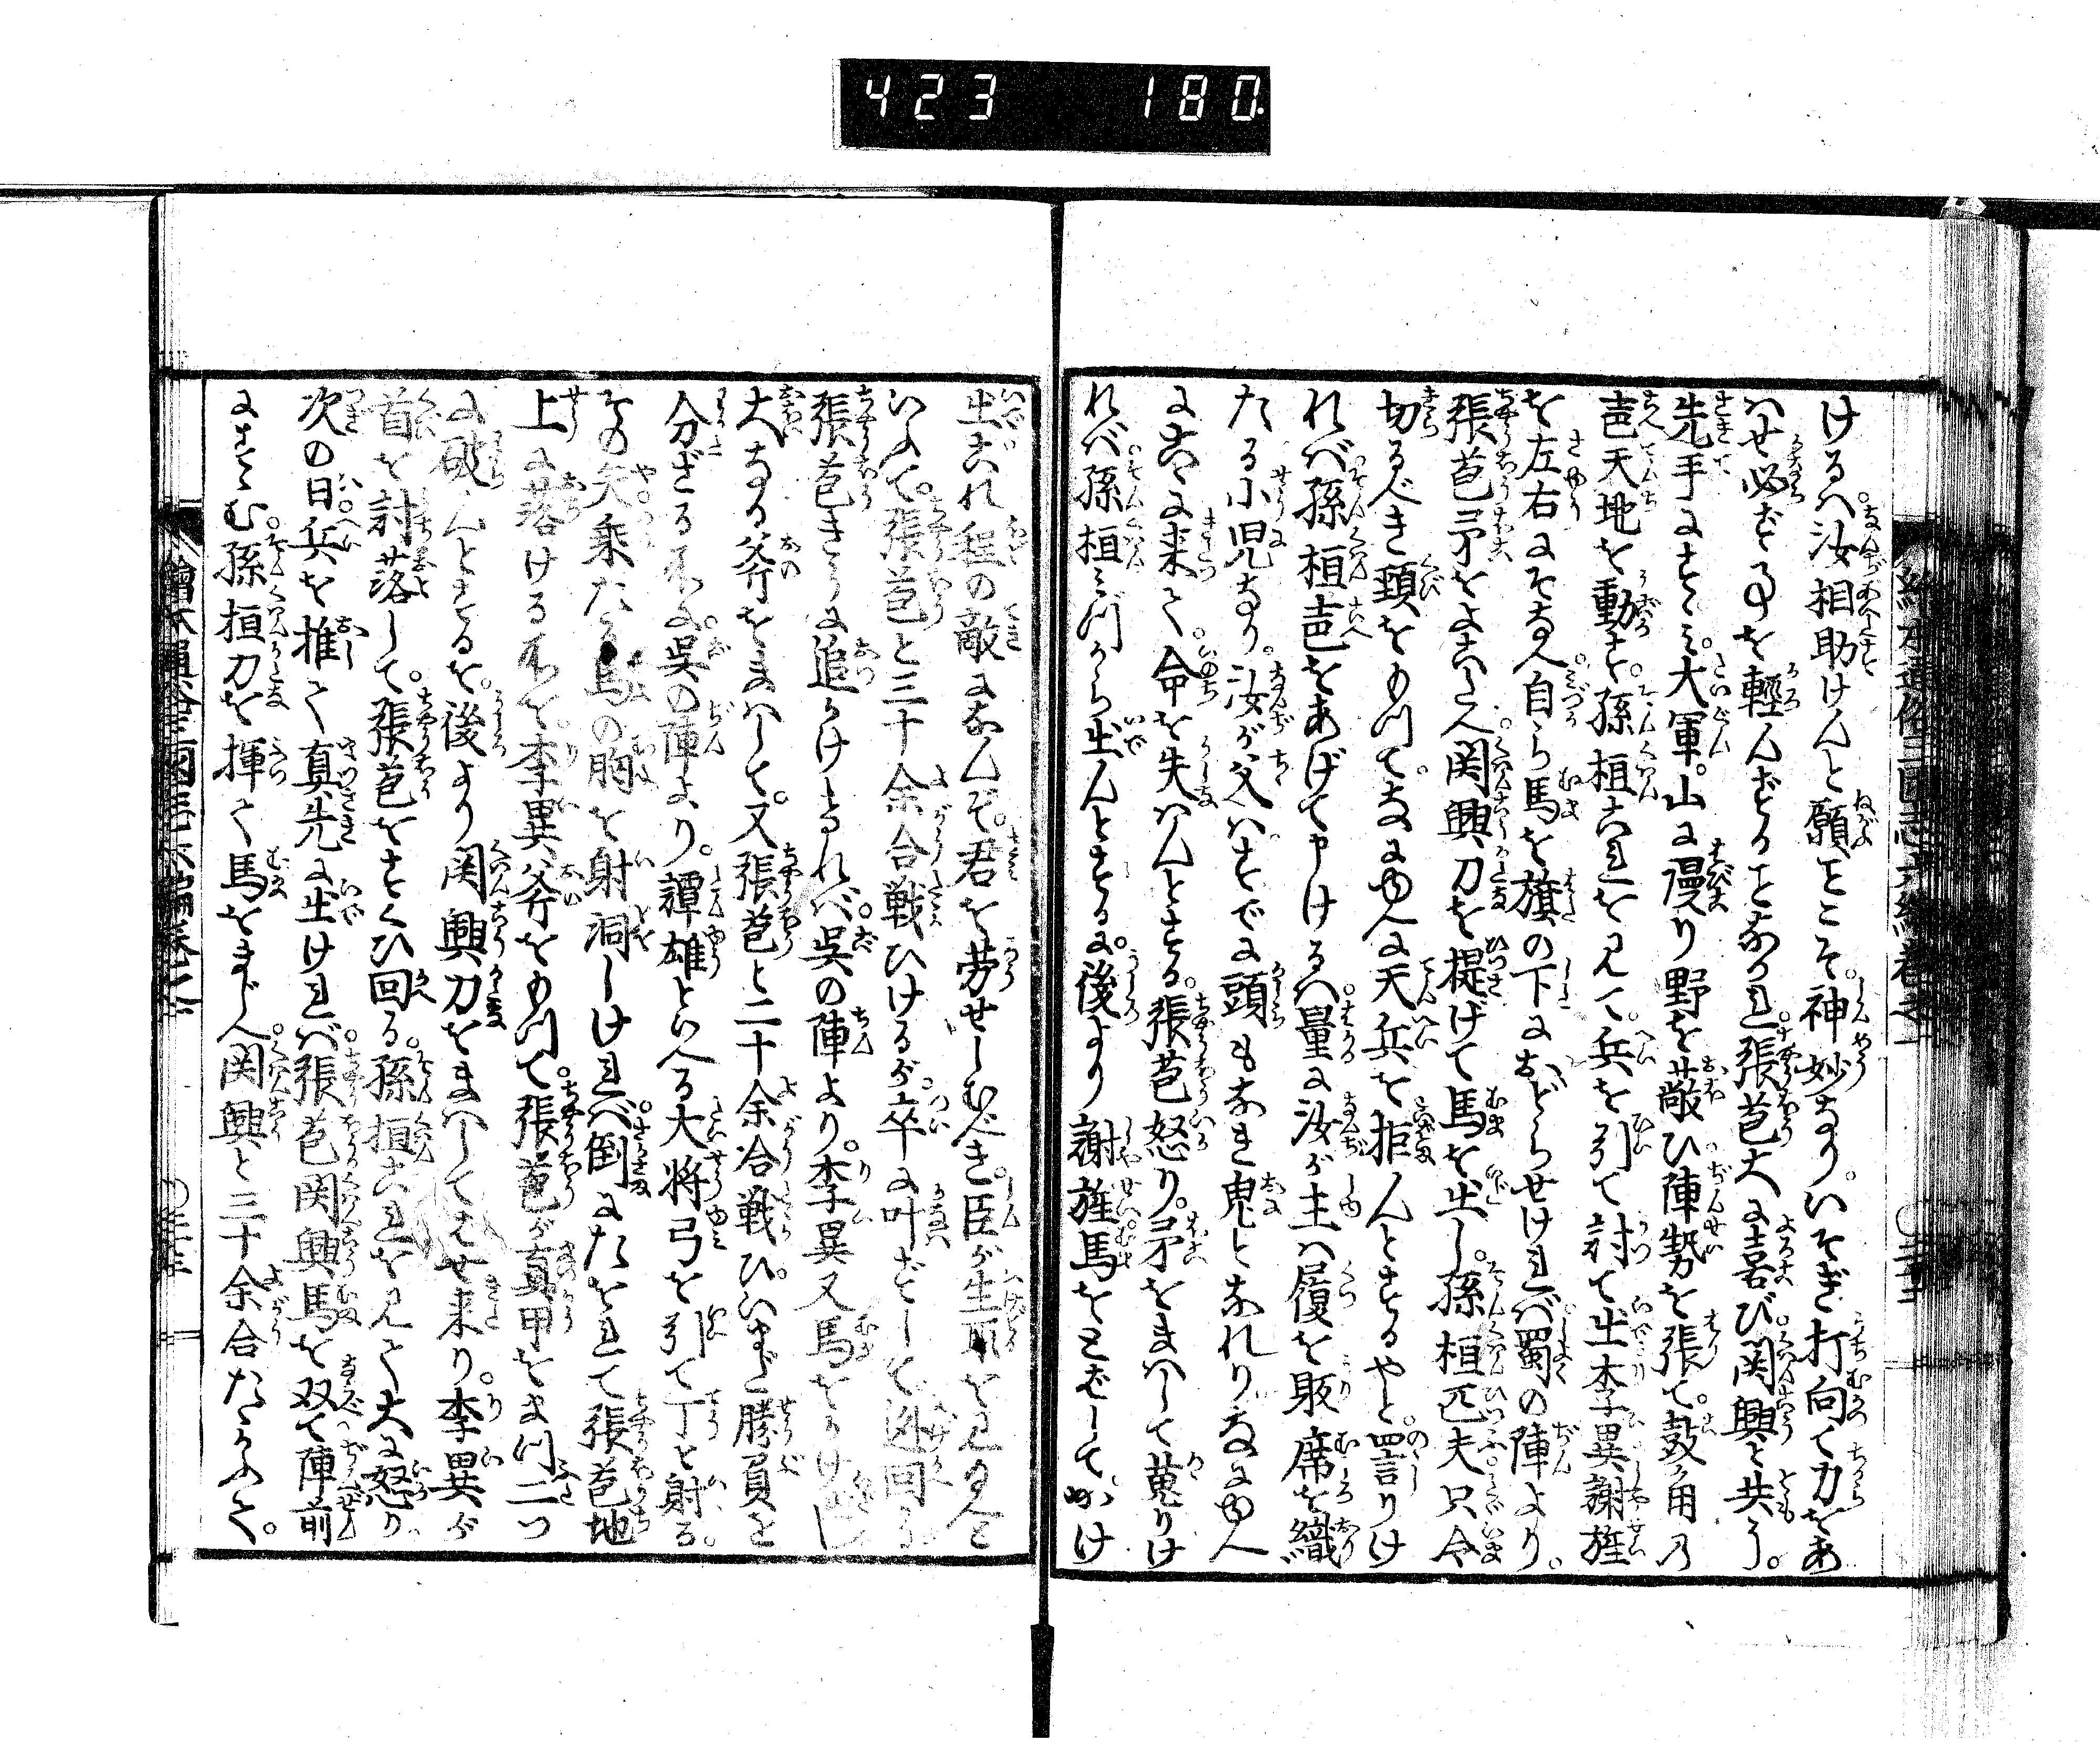 423 180
けるハ。汝相助けんと願ことこそ。神妙なり。いそぎ打向て力をあ
ハせ必ず事を軽んずることなかれ。張苞大に喜び。関興と共に。
先手にすゝミ。大軍。山に漫り野を蔽ひ陣勢を張て。鼓角乃
声天地を動す。孫桓これを見て。兵を引て討て出李異謝旌
を左右にそなへ。自ら馬を旗の下におどらせけれバ。蜀の陣より。
張苞矛をよこたへ。関興刀を提げて馬を出し。孫桓匹夫只今
切るべき頸をもつて。なにゆへに天兵を拒んとするやと。詈りけ
れバ。孫桓声をあげて申けるハ。量に汝が主ハ履を販席を織
たる小児なり。汝が父ハ。すでに頭もなき鬼となれり。なにゆへ
にこゝに来て。命を失ハんとする。張苞怒り。矛をまハして蒐りけ
れバ。孫桓ミづから出んとするに。後より謝旌。馬をとばしてかけ
出これ程の敵になんぞ。君を労せしむべき。臣が生取を見給へと
いふて。張苞と三十余合戦ひけるが。卒に叶ずして迯回る
張苞きうに追かけけれバ。呉の陣より。李異又馬をかけ出し
大なる斧をまハして。又張苞と二十余合戦ひ。いまだ勝負を
分ざる所に。呉の陣より。譚雄といへる大将弓を引て丁と射る。
その矢乗たる馬の胸を射洞しけれバ。倒にたをれて張苞地
上に落ける所を。李異斧をもつて。張苞が真甲をまつ二つ
に破んとするを。後より関興刀をまハしてはせ来り。李異が
首を討落して。張苞をすくひ回る。孫桓これを見て大に怒り
次の日。兵を推て真先に出けれバ。張苞関興馬を双て陣前
にすゝむ。孫桓刀を揮て馬をまじへ。関興と三十余合たゝかふて。